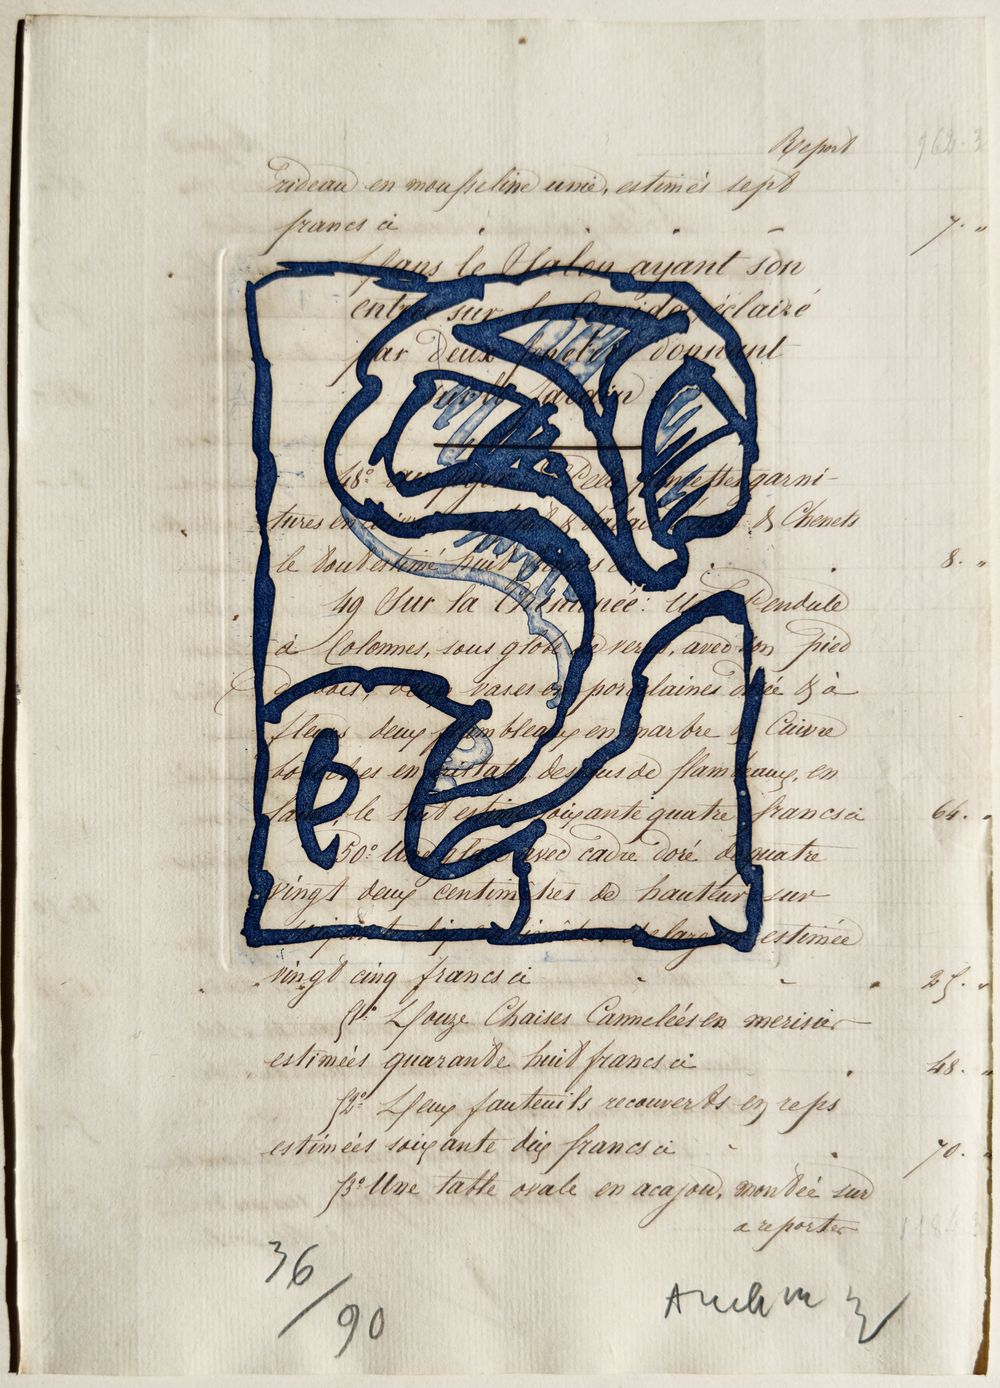 Report
Rideau en mousseline unie, estimés sept
francs ci 7. "
Dans le Salon ayant son
entrée sur le Corridor éclairé
par deux fenêtres donnant
sur le Jardin
48° au foyer garni-
tures en cuivre & Chenets
le tout estimé huit francs ci 8. "
49 Sur la Cheminée: Une Pendule
à Colonnes, sous globe de verre, avec son pied
de bois, deux vases en porcelaines dorée & à
fleurs deux flambeaux en marbre & Cuivre
bobèches en cristal, dessus de flambeaux, en
le tout estimé soixante quatre francs ci 64. "
50° Une glace avec cadre doré de quatre
vingt deux centimètres de hauteur sur
estimée
vingt cinq francs ci 25. "
51° Douze Chaises Cannelées en merisier
estimées quarante huit francs ci 48. "
52° Deux fauteuils recouverts en reps
estimées soixante dix francs ci 70. "
53° Une table ovale en acajou, montée sur
a reporter
36/90